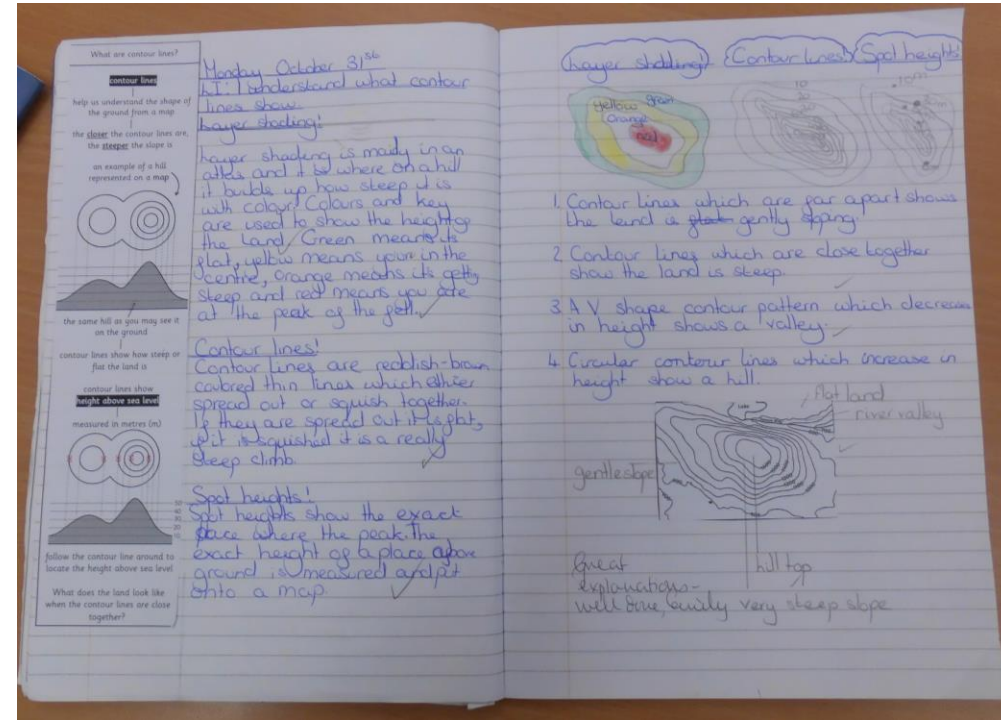 What are contour lines?
contour lines
help us understand the shape of
the ground from a map
the closer the contour lines are,
the steeper the slope is
an example of a hill
represented on a map
the same hill as you may see it
on the ground
contour lines show how steep or
flat the land is
contour lines show
height above sea level
measured in metres (m)
follow the contour line around to
locate the height above sea level
What does the land look like
when the contour lines are close
together?
Monday October 31st
LI: I understand what contour
lines show.
Layer shading!
Layer shading is mainly in an
atlas and it be where on a hill
it builds up how steep it is
with colour. Colours and key
are used to show the height of
the Land. Green means its
flat, yellow means your in the
centre, Orange means its getting
steep and red means you are
at the peak of the
Contour lines!
Contour Lines are reddish-brown
coloured thin lines which either
spread out or squish together.
If they are spread out it is flat,
if it is squished it is a really
steep climb.
Spot heights!
Spot heights show the exact
place where the peak. The
exact height of a place above
ground is measured and put
onto a map.
Layer shading! Contour lines! Spot heights!
yellow green
Orange
red
10
10m
1. Contour Lines which are far apart shows
the land is gently sloping.
2. Contour Lines which are close together
show the land is steep.
3. A V shape contour pattern which decreases
in height shows a valley.
4. Circular contour lines which increase in
height show a hill.
flat land
river valley
gentle slope
hill top
very steep slope
Great
explanations-
well done,